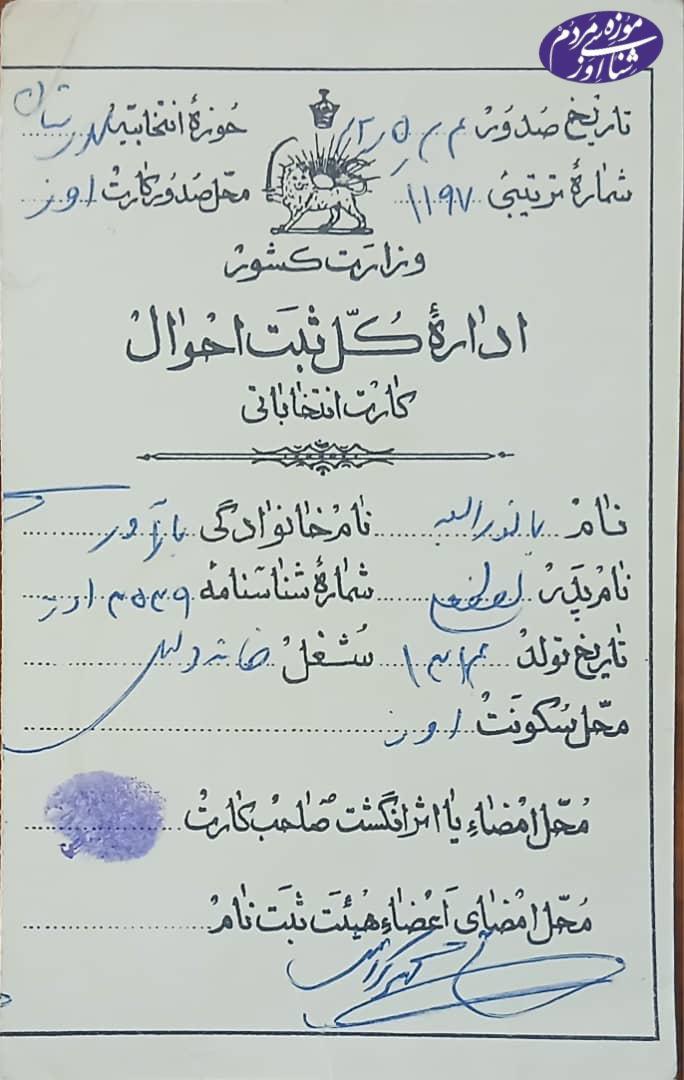 موزه مردم‌شناسی اوز
تاریخ صدور حوزهٔ انتخابیه لارستان
شمارهٔ ترتیبی ۱۱۹۷ محل صدور کارت اوز
وزارت کشور
ادارهٔ کلّ ثبت احوال
کارت انتخاباتی
نام نام خانوادگی
نام پدر شمارهٔ شناسنامه ۳۵۳۹ اوز
تاریخ تولد ۱۳۱۴ شغل خانه
محلّ سکونت اوز
محلّ امضاء یا اثر انگشت صاحب کارت
محلّ امضای اعضاء هیئت ثبت نام